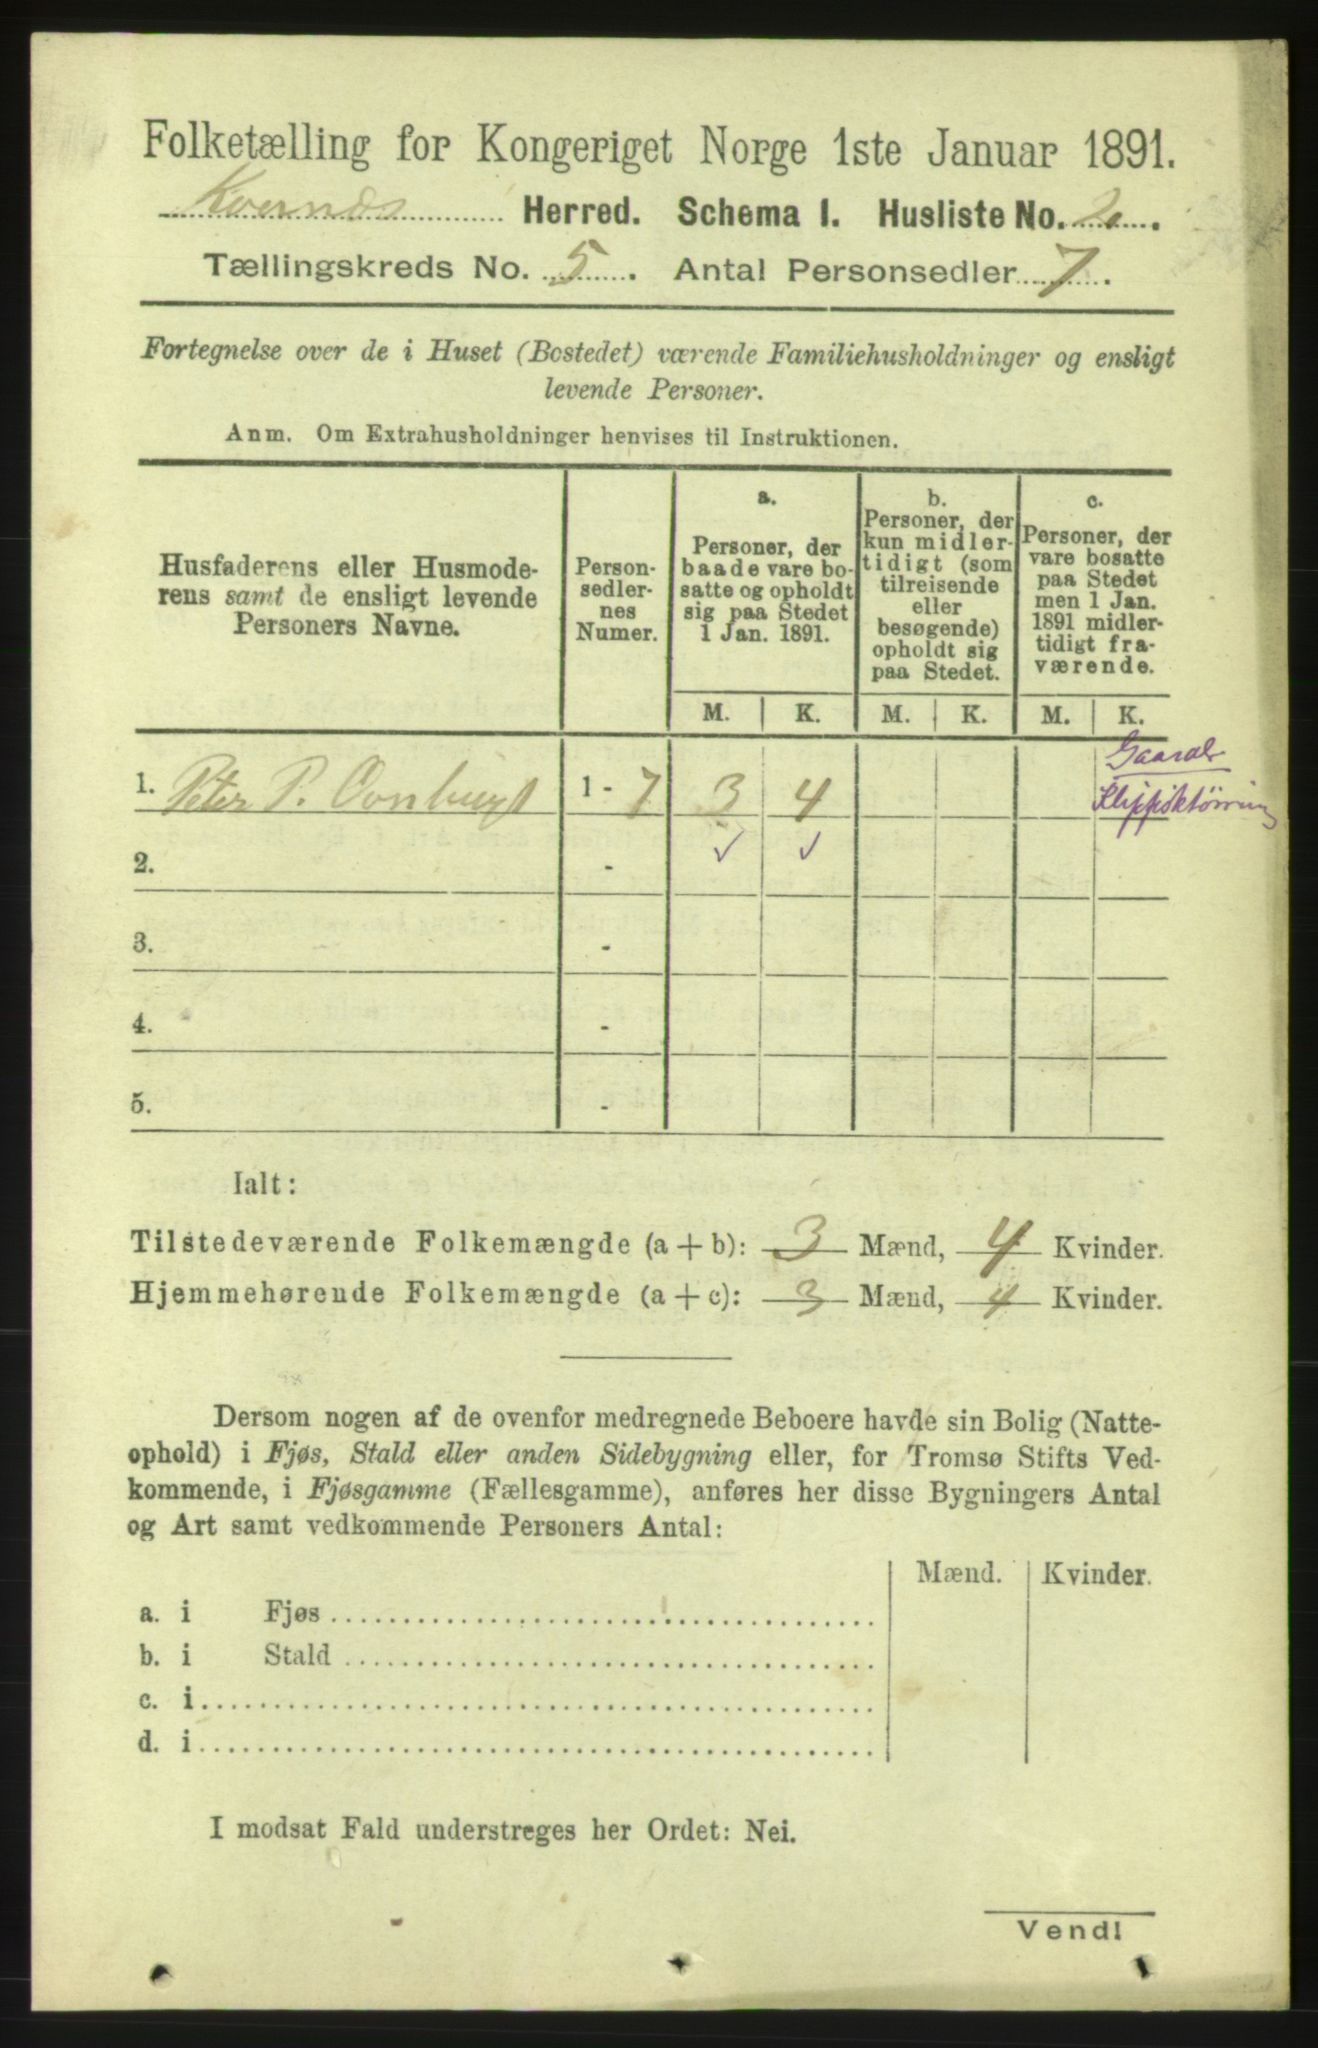 Folketælling for Kongeriget Norge 1ste Januar 1891.
Kvernæs Herred. Schema I. Husliste No. 2.
Tællingskreds No. 5. Antal Personsedler 7.
Fortegnelse over de i Huset (Bostedet) værende Familiehusholdninger og ensligt
levende Personer.
Anm. Om Extrahusholdninger henvises til Instruktionen.
Husfaderens eller Husmode-
rens samt de ensligt levende
Personers Navne.
Person-
sedler-
nes
Numer.
a.
Personer, der
baade vare bo-
satte og opholdt
sig paa Stedet
1 Jan. 1891.
b.
Personer, der
kun midler-
tidigt (som
tilreisende
eller
besøgende)
opholdt sig
paa Stedet.
c.
Personer, der
vare bosatte
paa Stedet
men 1 Jan.
1891 midler-
tidigt fra-
værende.
M. K. M. K. M. K.
1. Peter P. 1 - 7 3 4
2. - ✓ ✓
3. -
4. -
5. -
Ialt:
Tilstedeværende Folkemængde (a + b): 3 Mænd, 4 Kvinder.
Hjemmehørende Folkemængde (a + c): 3 Mænd, 4 Kvinder.
Dersom nogen af de ovenfor medregnede Beboere havde sin Bolig (Natte-
ophold) i Fjøs, Stald eller anden Sidebygning eller, for Tromsø Stifts Ved-
kommende, i Fjøsgamme (Fællesgamme), anføres her disse Bygningers Antal
og Art samt vedkommende Personers Antal:
Mænd. Kvinder.
a. i Fjøs
b. i Stald
c. i
d. i
I modsat Fald understreges her Ordet: Nei.
Vend!